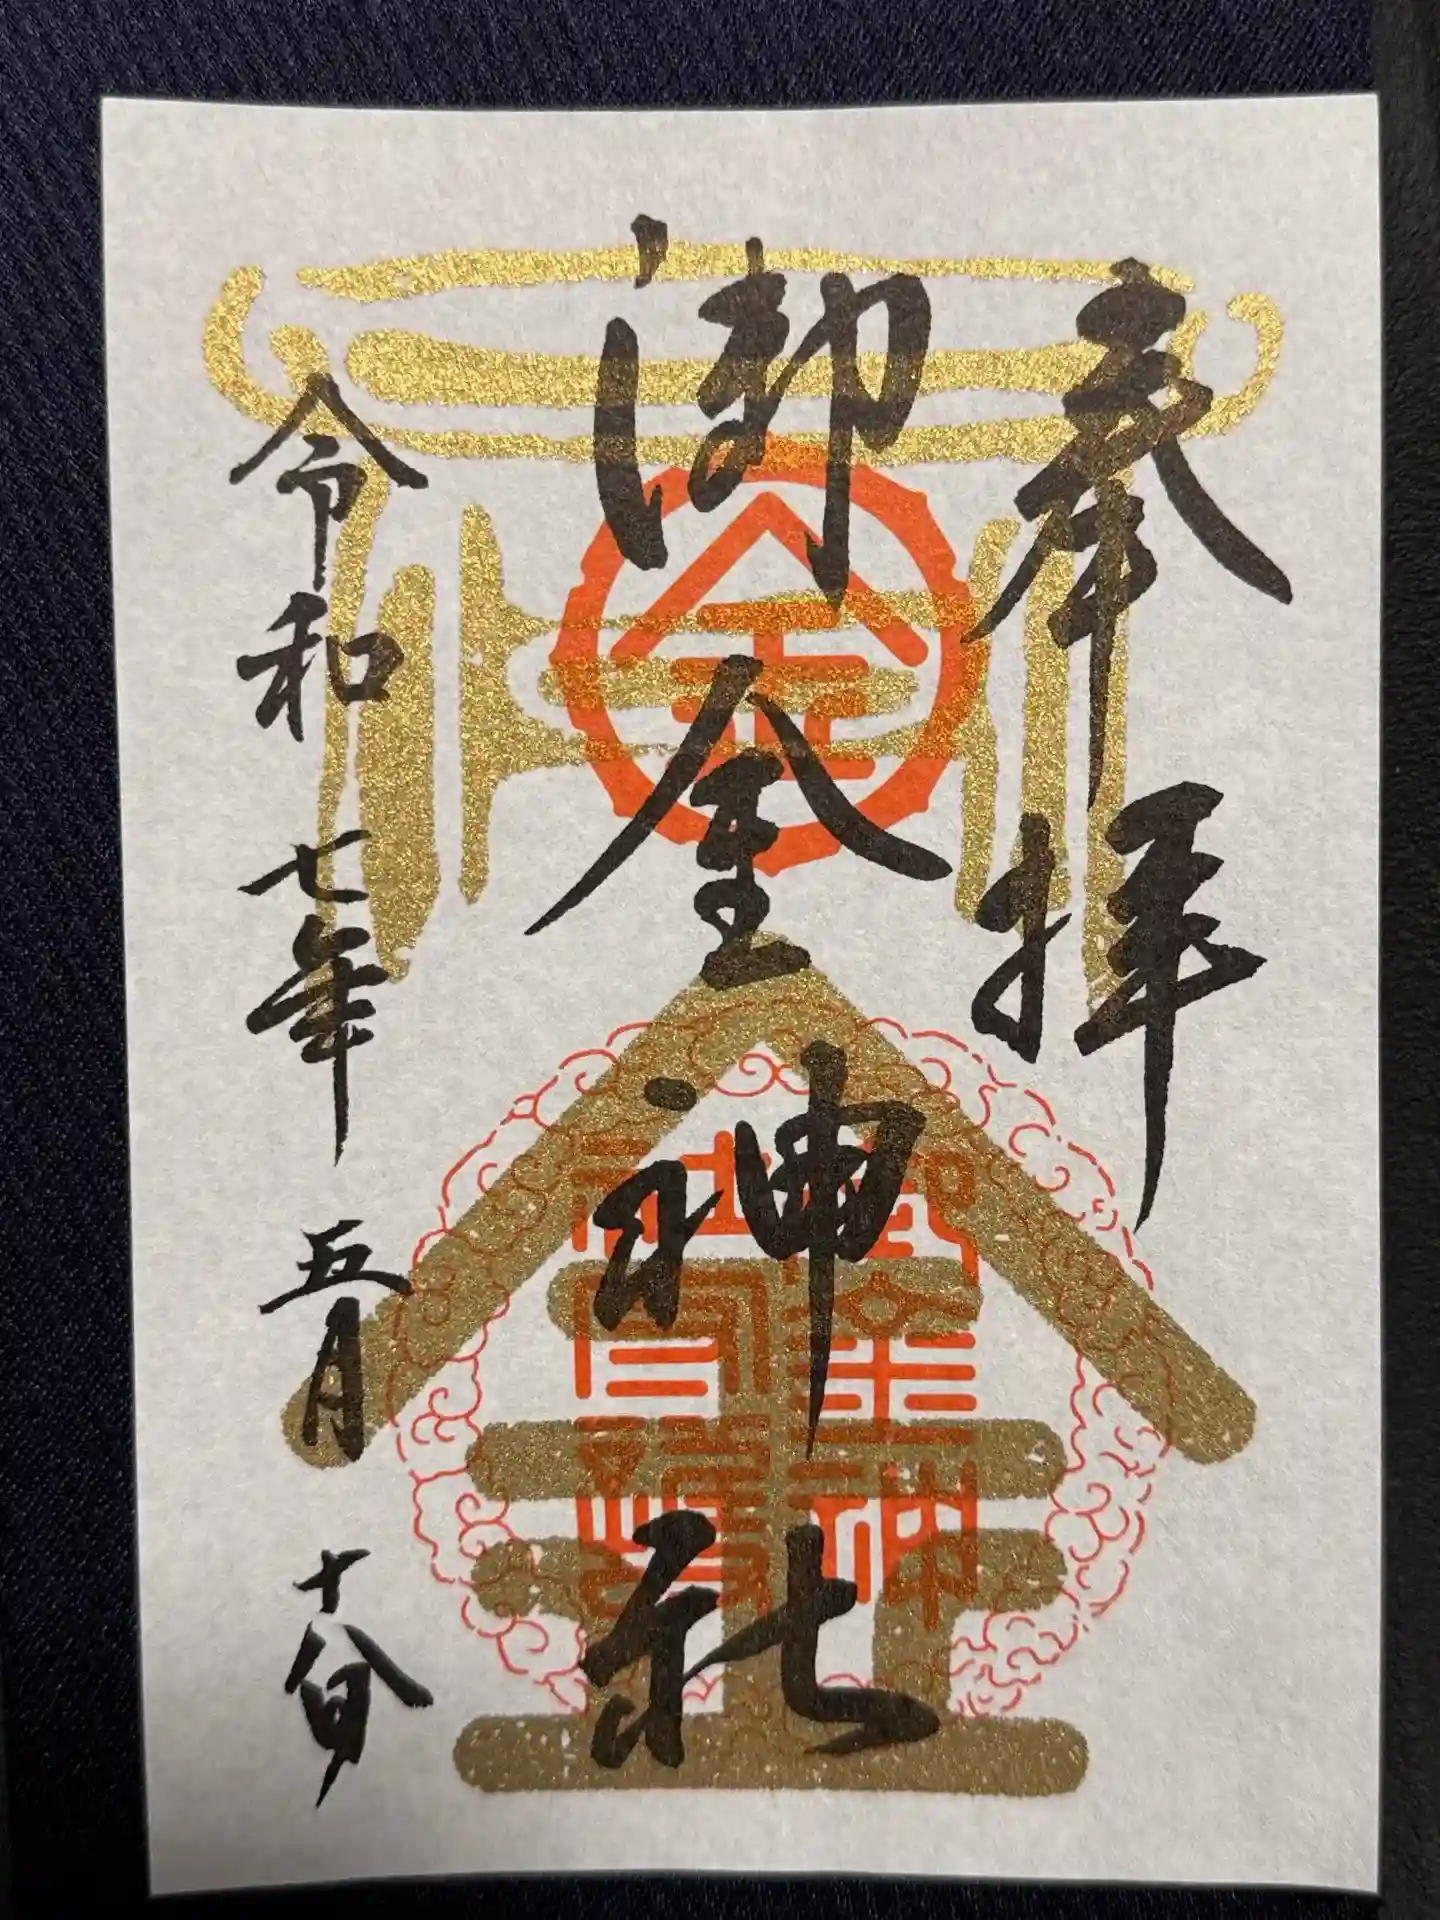 奉拝
御金神社
令和七年五月十八日
金
金
御金神
社